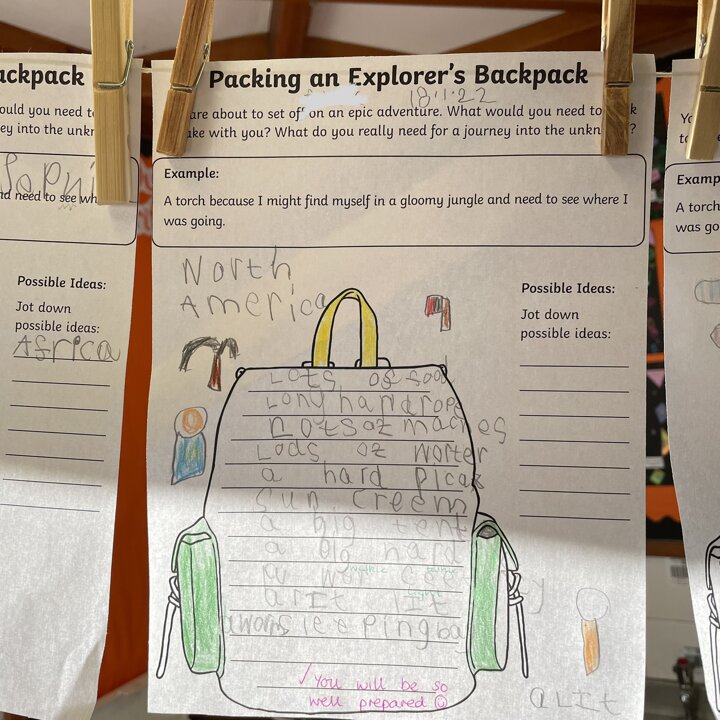 ackpack
ould you need t
ey into the unkn
Sophi
nd need to see wh
Possible Ideas:
Jot down
possible ideas:
Africa
Packing an Explorer's Backpack
18.1.22
are about to set off on an epic adventure. What would you need to k
ake with you? What do you really need for a journey into the unkn ?
Example:
A torch because I might find myself in a gloomy jungle and need to see where I
was going.
North
America
Possible Ideas:
Jot down
possible ideas:
Lots of food
Long hardrope
Lods oz worter
a hard picax
Sun creem
a big tent
a big hard
a
a LIt LIt
sleepingba
✓ You will be so
well prepared ☺
a LIt
Yo
to
Examp
A torch
was go